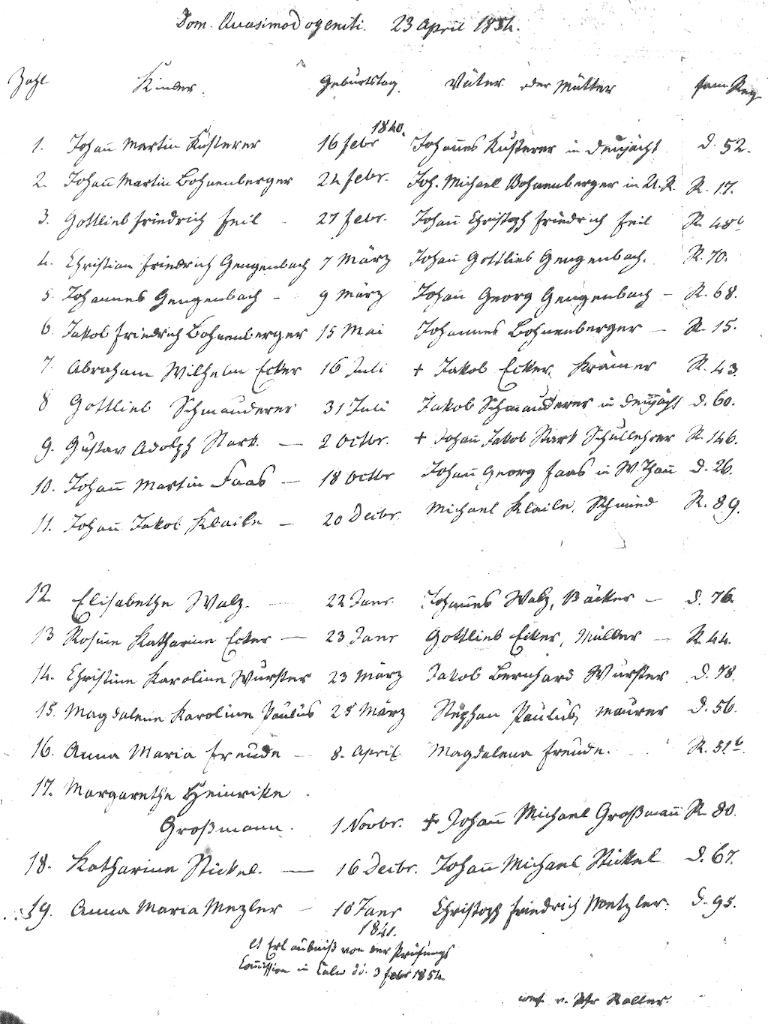 Dom. Quasimodogeniti. 23 April 1854.
Zahl Kinder. Geburtstag. Väter oder Mütter Fam Reg
1840.
1. Johann Martin Kusterer 16 Febr Johannes Kusterer in Dennjächt D. 52.
2. Johann Martin Bohnenberger 24 Febr. Joh. Michael Bohnenberger in U.R. R. 17.
3. Gottlieb Friedrich Feil - 27 Febr. Johann Christoph Friedrich Feil R. 48b
4. Christian Friedrich Gengenbach 7 März Johann Gottlieb Gengenbach. R. 70.
5. Johannes Gengenbach - 9 März Johann Georg Gengenbach - R. 68.
6. Jakob Friedrich Bohnenberger 15 Mai Johannes Bohnenberger - R. 15.
7. Abraham Wilhelm Ecker 16 Juli + Jakob Ecker, Krämer R. 43.
8 Gottlieb Schmauderer 31 Juli Jakob Schmauderer in Dennjächt D. 60.
9. Gustav Adolph Stark. - 2 Octbr. + Johann Jakob Stark Schullehrer R. 146.
10. Johann Martin Faas - 18 Octbr Johann Georg Faas in D. 26.
11. Johann Jakob Klaile - 20 Decbr. Michael Klaile, Schmied R. 89.
12. Elisabethe Walz. - 22 Janr. Johannes Walz, Bäcker - D. 76.
13 Rosine Katharine Ecker - 23 Janr Gottlieb Ecker, Müller - R. 44.
14. Christine Karoline Wurster 23 März Jakob Bernhard Wurster D. 78.
15. Magdalene Karoline Paulus 28 März Stephan Paulus, Maurer D. 56.
16. Anna Maria Freude - 8. April Magdalena Freude. R. 51b
17. Margarethe Heinrike
Großmann. 1 Novbr. + Johann Michael Großmann R. 80.
18. Katharine Stickel. - 16 Decbr. Johann Michael Stickel D. 67.
19. Anna Maria Mezler - 10 Janr Christoph Friedrich Metzler. D. 95.
1841.
Erlaubniß von der Prüfungs
Commission in Calw dd. 3 Febr 1854.
v. Pfr Roller.